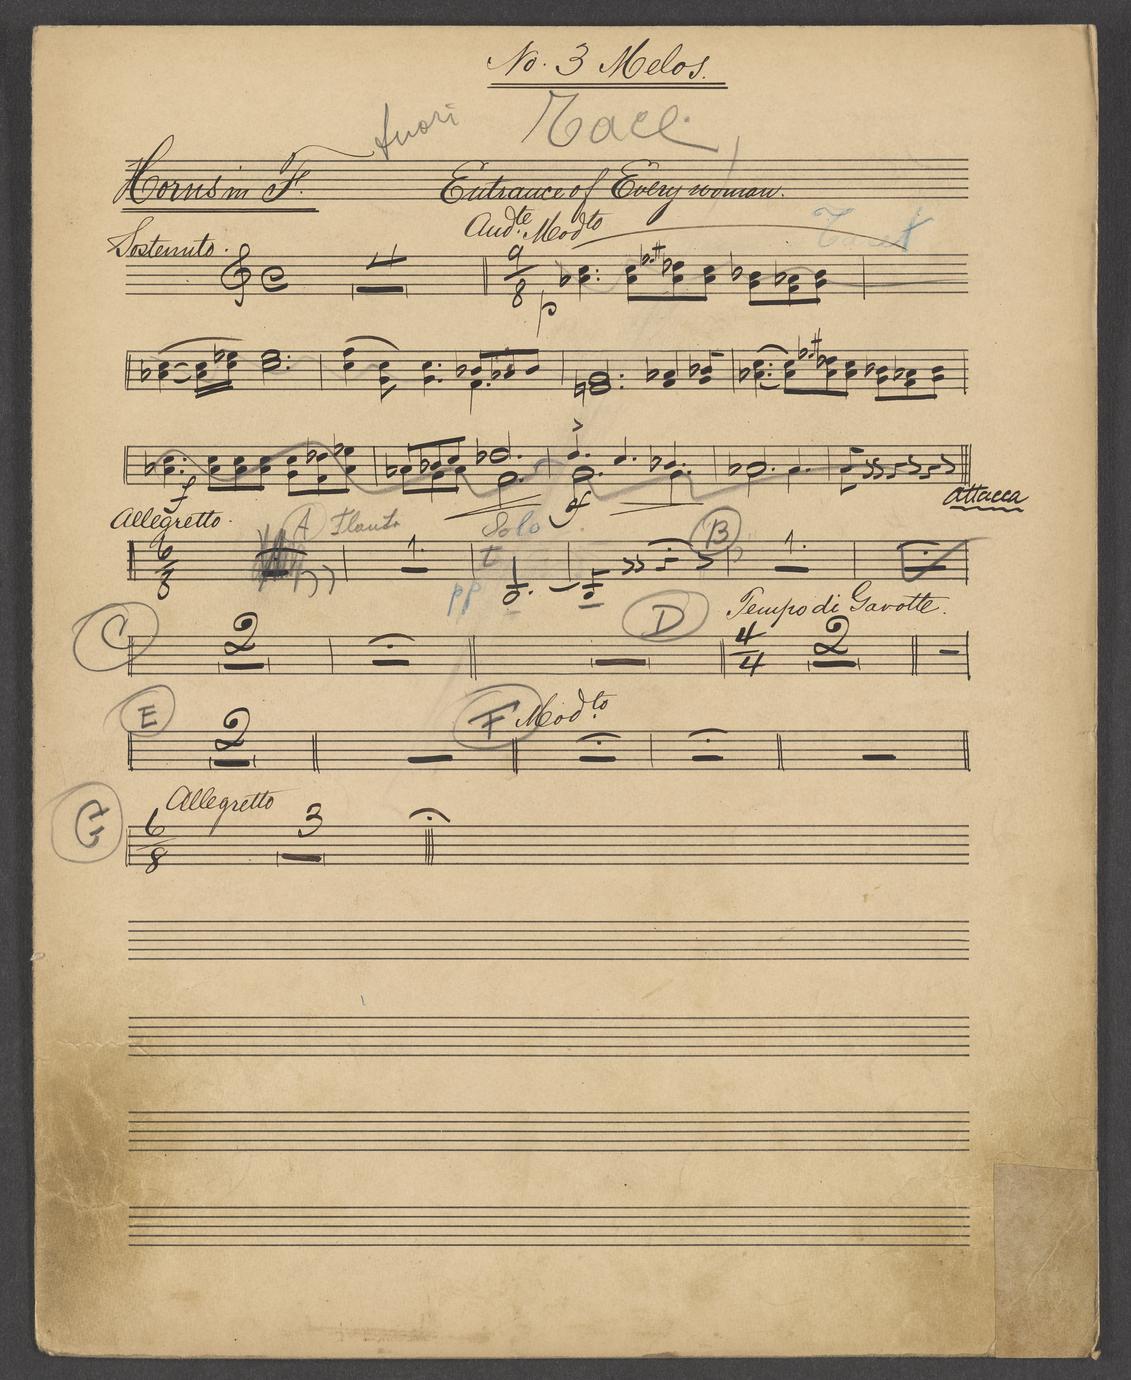 No. 3 Melos.
fuori Tace.
Horns in F. Entrance of Everywoman.
Sostenuto. And.te Mod.to Tacet
4 9 8 p
f sf Attacca
Allegretto. A Flauto Solo B
6 8 1. pp 1.
C 2 D Tempo di Gavotte.
4 4 2
E 2 F Mod.to
G Allegretto
6 8 3